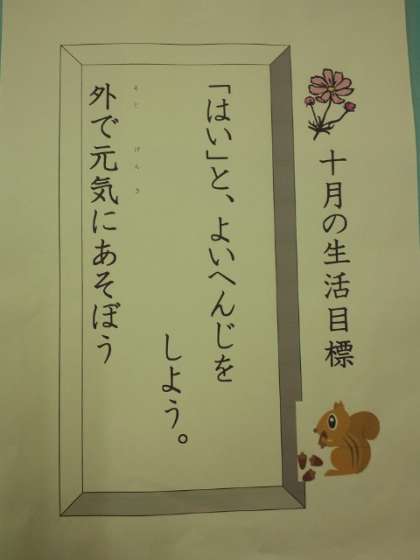 十月の生活目標
「はい」と、よいへんじを
しよう。
外で元気にあそぼう
そと げんき